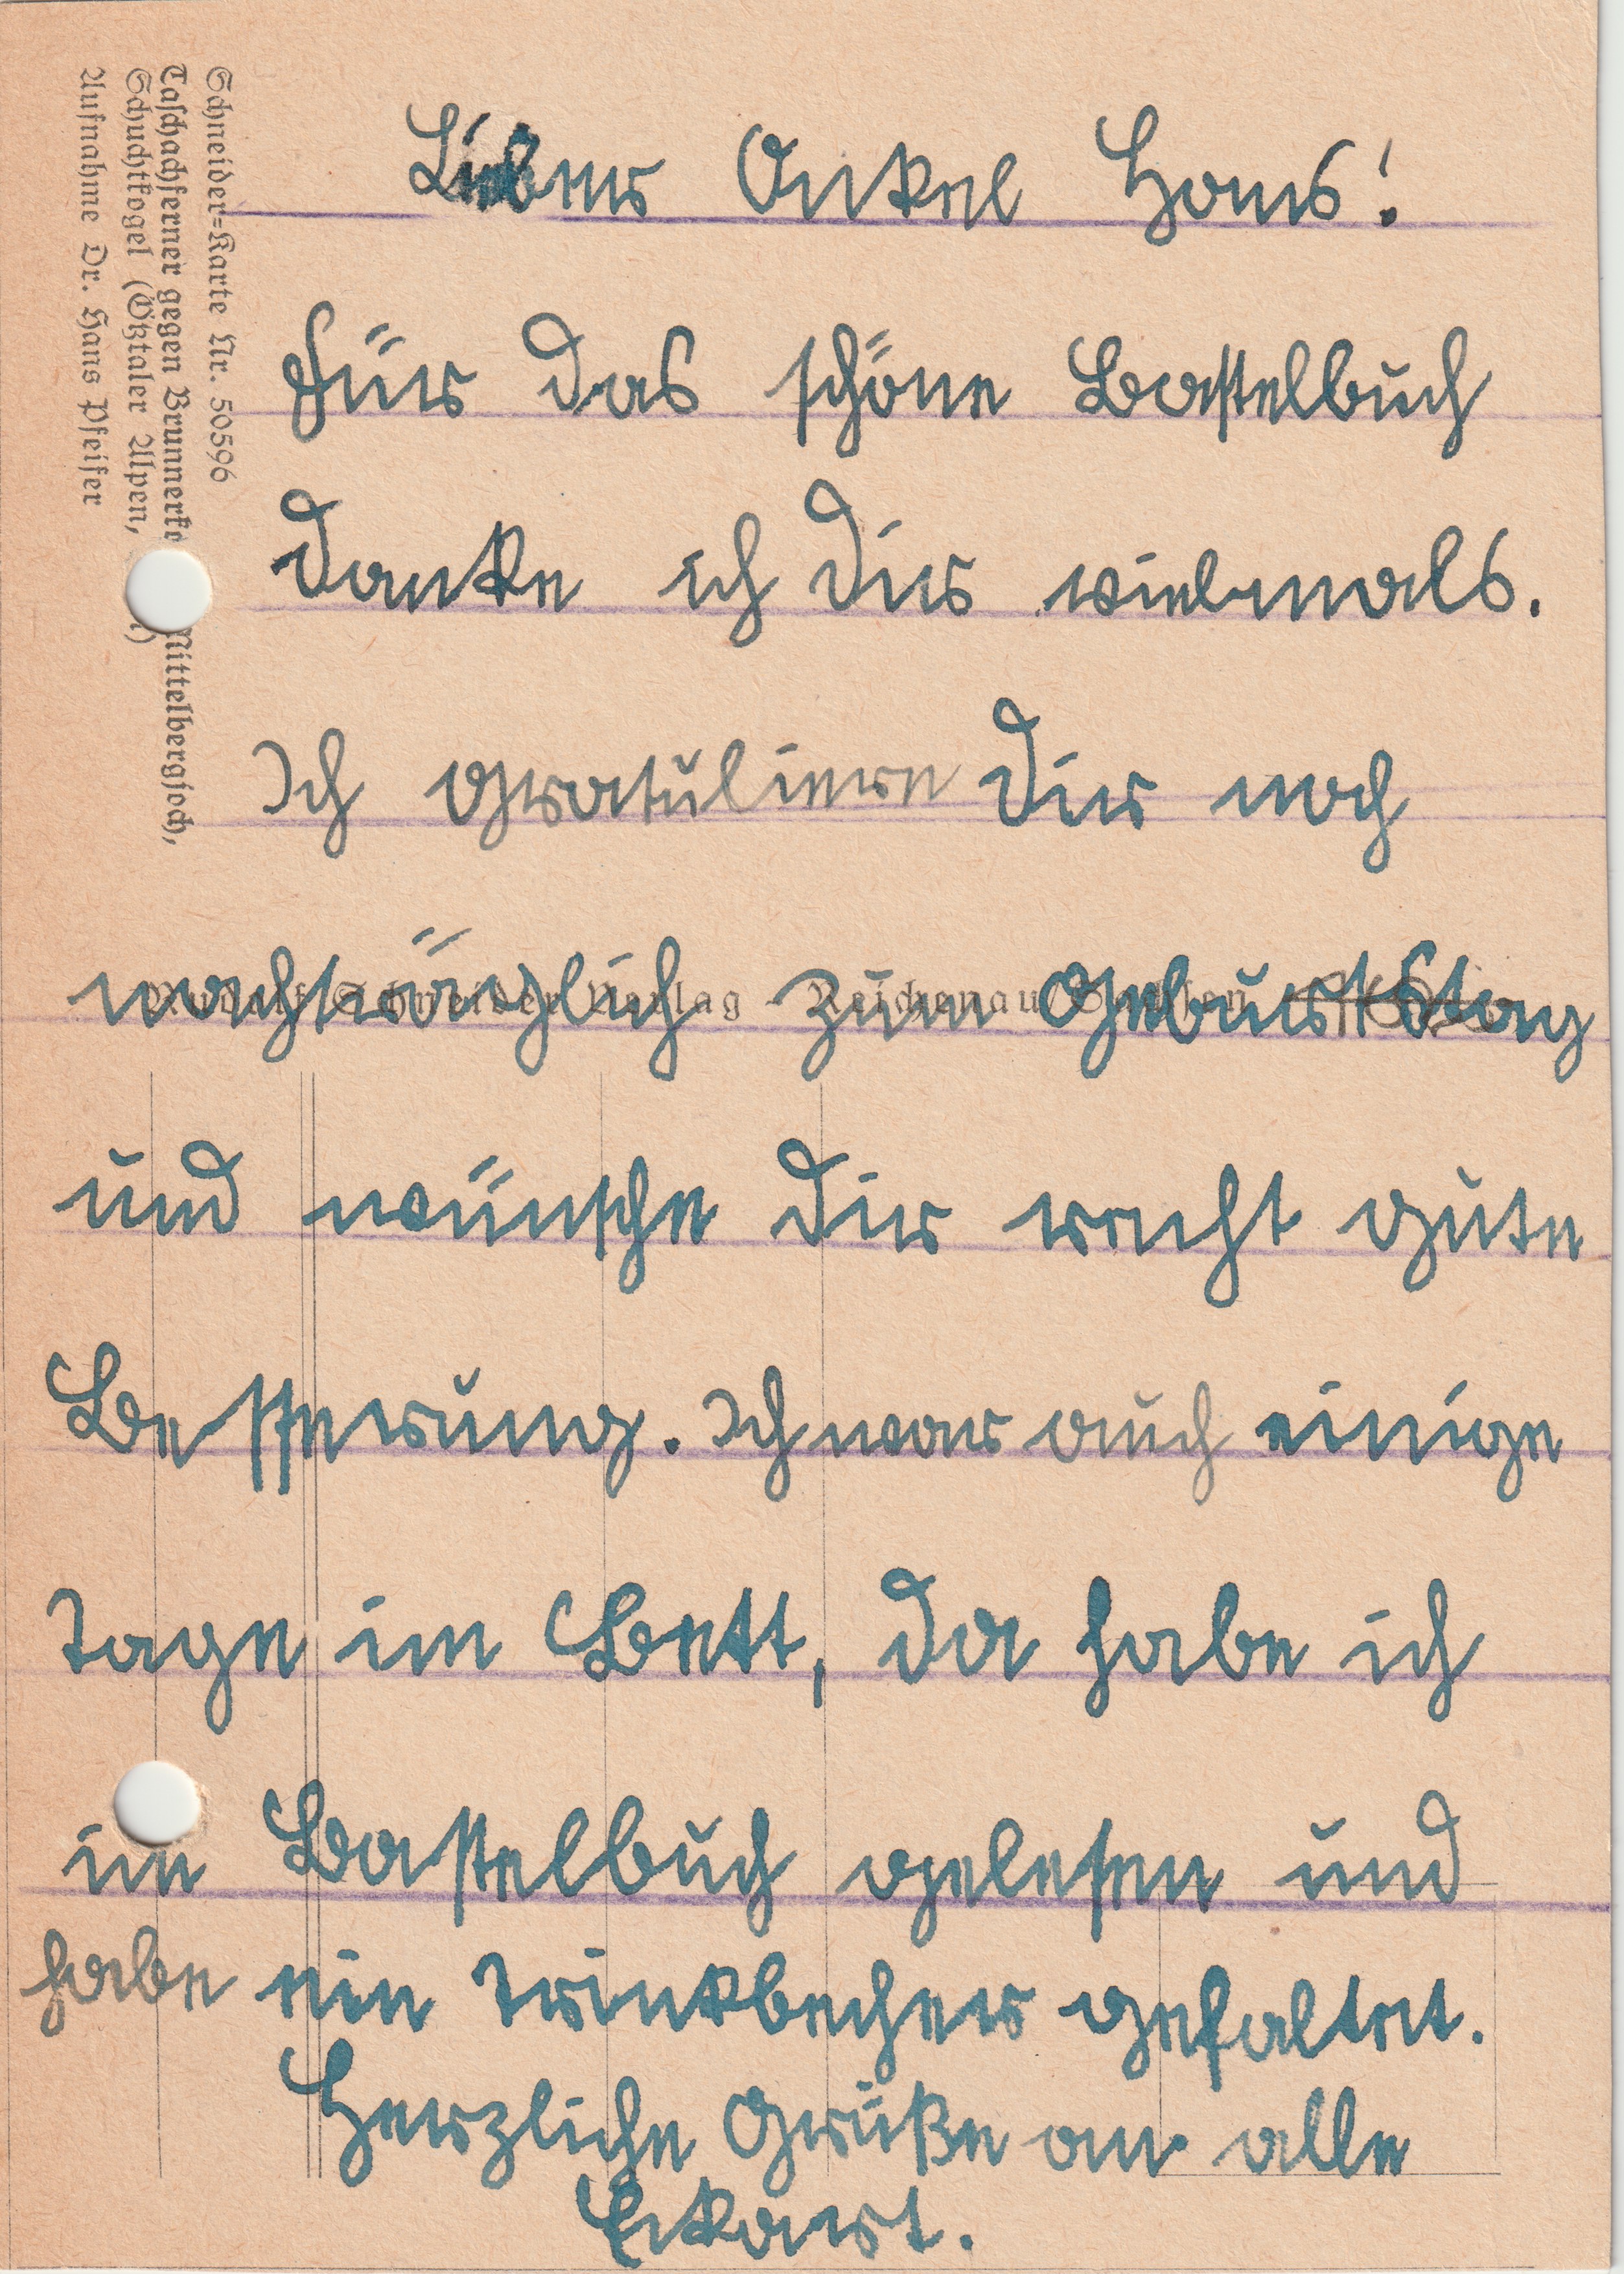 Schneider=Karte Nr. 50596
Taschachferner gegen Brunnerko Mittelbergjoch,
Schuchtkogel (Ötztaler Alpen,
Aufnahme Dr. Hans Pfeifer
Lieber Onkel Hans!
Für das schöne Bastelbuch
danke ich Dir vielmals.
Ich gratuliere Dir noch
nachträglich zum Geburtstag
Verlag Reichenau
und wünsche Dir recht gute
Besserung. Ich war auch einige
Tage im Bett, da habe ich
im Bastelbuch gelesen und
habe ein Trinkbecher gefaltet.
Herzliche Grüße an alle
Eckart.